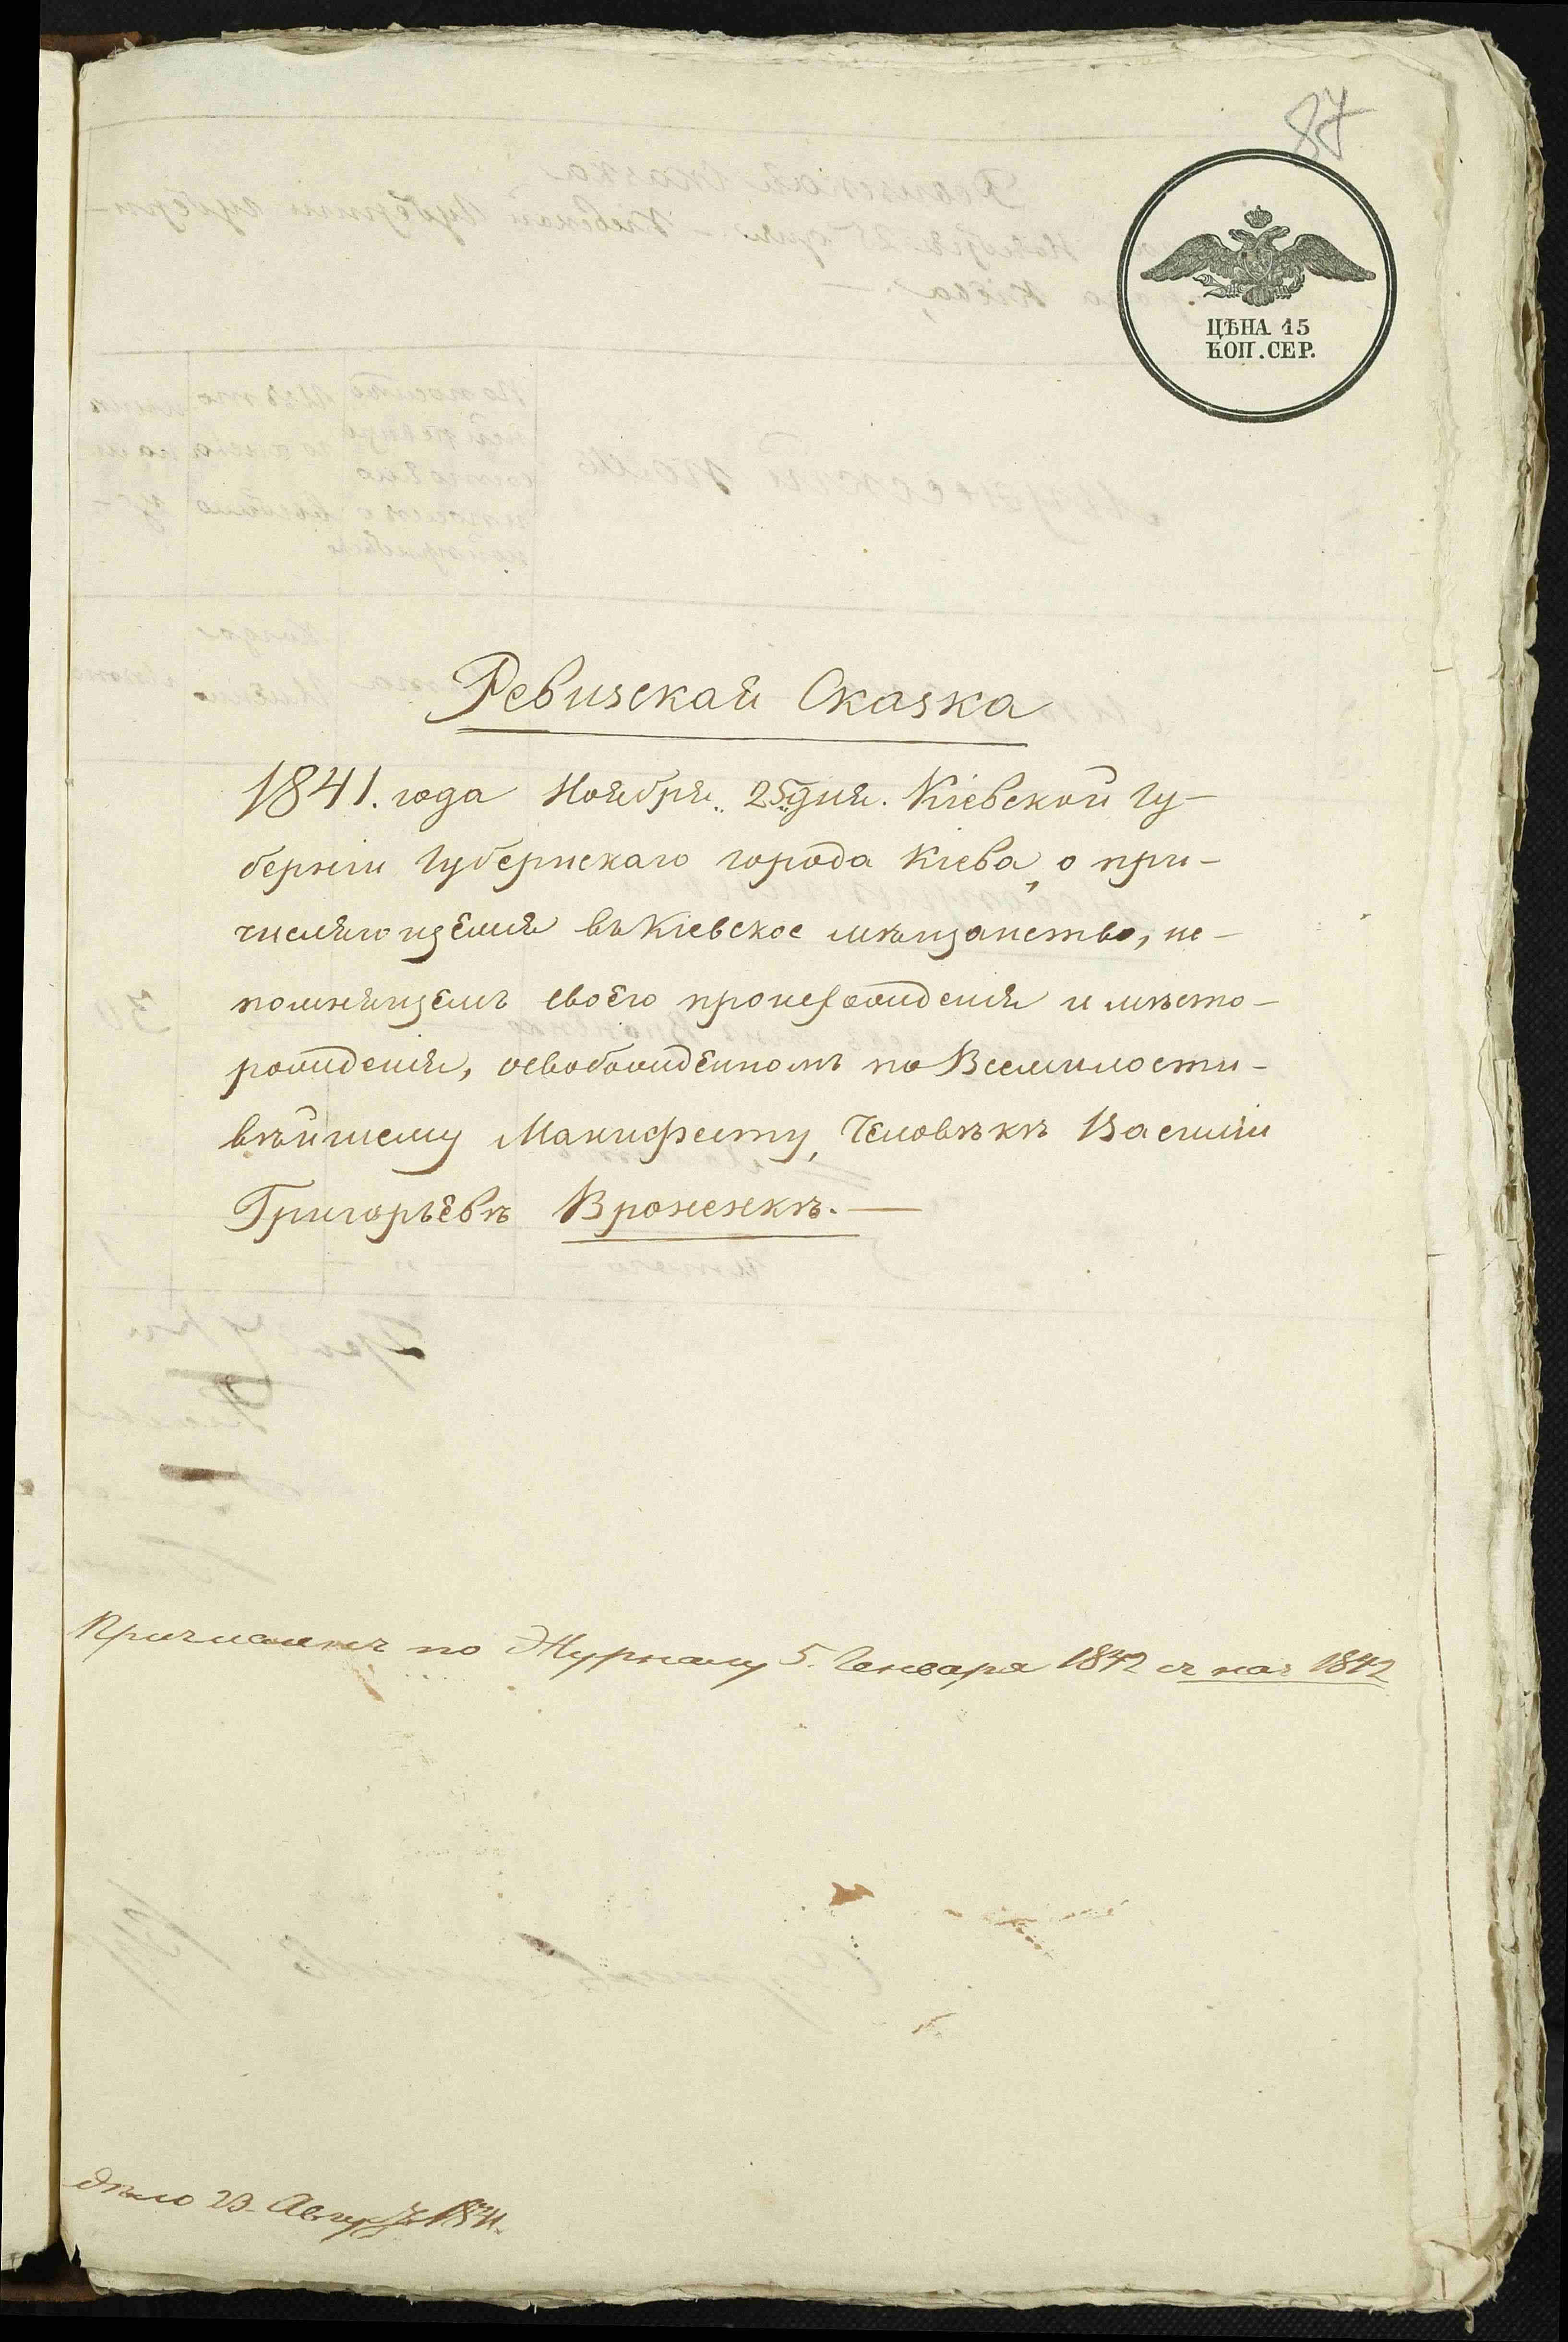 87
ЦѢНА 15
КОП. СЕР.
Ревизская Сказка
1841. года Ноября 25 дня. Кіевской Гу-
берніи Губернскаго города Кіева, о при-
числяющемся въ Кіевское мѣщанство, не-
помнящемъ своего происхожденія и мѣсто-
рожденія, освобожденномъ по Всемилости-
вѣйшему Манифесту, Человѣкѣ Василіи
Григорьевѣ Вроненкѣ. —
Причисленъ по Журналу 5. Генваря 1842 съ нач 1842
дѣло 23 Август 1841.